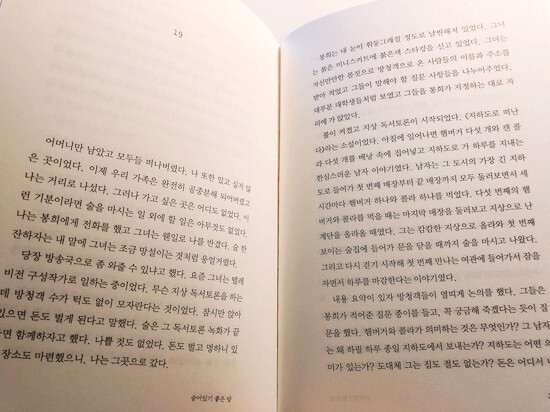 19
어머니만 남았고 모두들 떠나버렸다. 나 또한 있고 싶지 않
은 곳이었다. 이제 우리 가족은 완전히 공중분해 되어버렸고
나는 거리로 나섰다. 그러나 가고 싶은 곳은 어디도 없었다. 이
런 기분이라면 술을 마시는 일 외에 할 일은 아무것도 없었다.
나는 봉희에게 전화를 했고 그녀는 웬일로 나를 반겼다. 술 한
잔하자는 내 말에 그녀는 조금 망설이는 것처럼 웅얼거렸다.
당장 방송국으로 좀 와줄 수 있냐고 했다. 요즘 그녀는 텔레
비전 구성작가로 일하는 중이었다. 무슨 지상 독서토론을 하는
데 방청객 수가 턱도 없이 모자란다는 것이었다. 잠시만 앉아
있으면 돈도 벌게 된다고 말했다. 술은 그 독서토론 녹화가 끝
면 함께하자고 했다. 나쁠 것도 없었다. 돈도 벌고 멍하니 있
장소도 마련했으니. 나는 그곳으로 갔다.
숨어있기 좋은 방
봉희는 내 눈이 휘둥그레질 정도로 날씬해져 있었다. 그녀
는 붉은 미니스커트에 붉은색 스타킹을 신고 있었다. 그녀는
자신만만한 몸짓으로 방청객으로 온 사람들의 이름과 주소를
받아 적었고 그들이 말해야 할 질문 사항들을 나누어주었다.
대부분 대학생들처럼 보였고 그들을 봉희가 지정하는 대로 자
리에 가 앉았다.
불이 켜졌고 지상 독서토론이 시작되었다. 《지하도로 떠난
다》라는 소설이었다. 아침에 일어나면 햄버거 다섯 개와 캔 콜
라 다섯 개를 배낭 속에 집어넣고 지하도로 가 하루를 지내는
한심스러운 남자 이야기였다. 남자는 그 도시의 가장 긴 지하
도로 들어가 첫 번째 매장부터 끝 매장까지 모두 둘러보면서 세
시간마다 햄버거 하나와 콜라 하나를 먹었다. 다섯 번째의 햄
버거와 콜라를 먹을 때는 마지막 매장을 둘러보고 지상으로 난
계단을 올라올 때였다. 그는 캄캄한 지상으로 올라와 첫 번째
보이는 술집에 들어가 문을 닫을 때까지 술을 마시고 나왔다.
그리고 다시 걷기 시작해 첫 번째 만나는 여관에 들어가서 잠을
자면서 하루를 마감한다는 이야기였다.
내용 요약이 있자 방청객들이 열띠게 논의를 했다. 그들은
봉희가 적어준 질문 종이를 들고, 꼭 궁금해 죽겠다는 듯이 질
문을 했다. 햄버거와 콜라가 의미하는 것은 무엇인가? 그 남자
는 왜 하필 하루 종일 지하도에서 보내는가? 지하도는 어떤 의
미가 있는가? 도대체 그는 집도 절도 없는가? 돈은 어디서 나